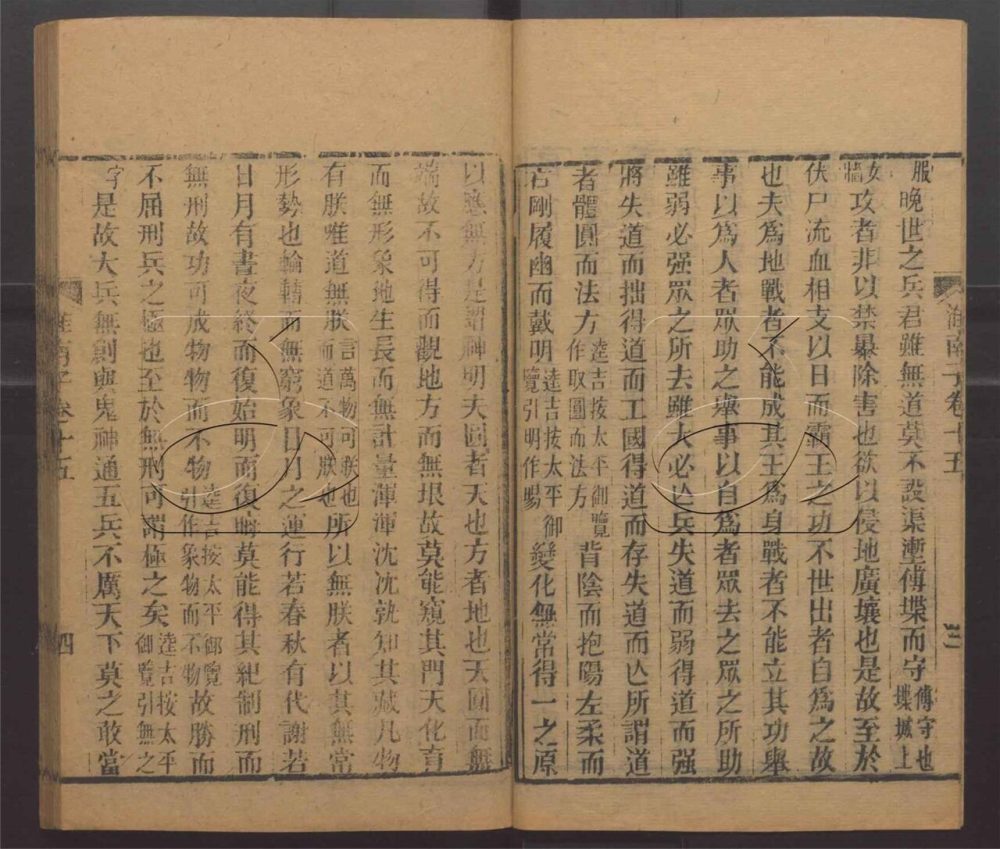 淮南子卷十五
三
服晚世之兵君雖無道莫不設渠壍傅堞而守傅守也堞城上
女牆攻者非以禁暴除害也欲以侵地廣壤也是故至於
伏尸流血相支以日而霸王之功不世出者自爲之故
也夫爲地戰者不能成其王爲身戰者不能立其功舉
事以爲人者眾助之舉事以自爲者眾去之眾之所助
雖弱必强眾之所去雖大必亾兵失道而弱得道而强
將失道而拙得道而工國得道而存失道而亾所謂道
者體圓而法方逵吉按太平御覽作取圓而法方背陰而抱陽左柔而
右剛履幽而戴明逵吉按太平御覽引明作陽變化無常得一之原
以應無方是謂神明夫圓者天也方者地也天圓而無
端故不可得而觀地方而無垠故莫能窺其門天化育
而無形象地生長而無計量渾渾沈沈孰知其藏凡物
有朕唯道無朕言萬物可朕也而道不可朕也所以無朕者以其無常
形勢也輪轉而無窮象日月之運行若春秋有代謝若
日月有晝夜終而復始明而復晦莫能得其紀制刑而
無刑故功可成物物而不物逵吉按太平御覽引作象物而不物故勝而
不屈刑兵之極也至於無刑可謂極之矣逵吉按太平御覽引無之
字是故大兵無創與鬼神通五兵不厲天下莫之敢當
淮南子卷十五
四